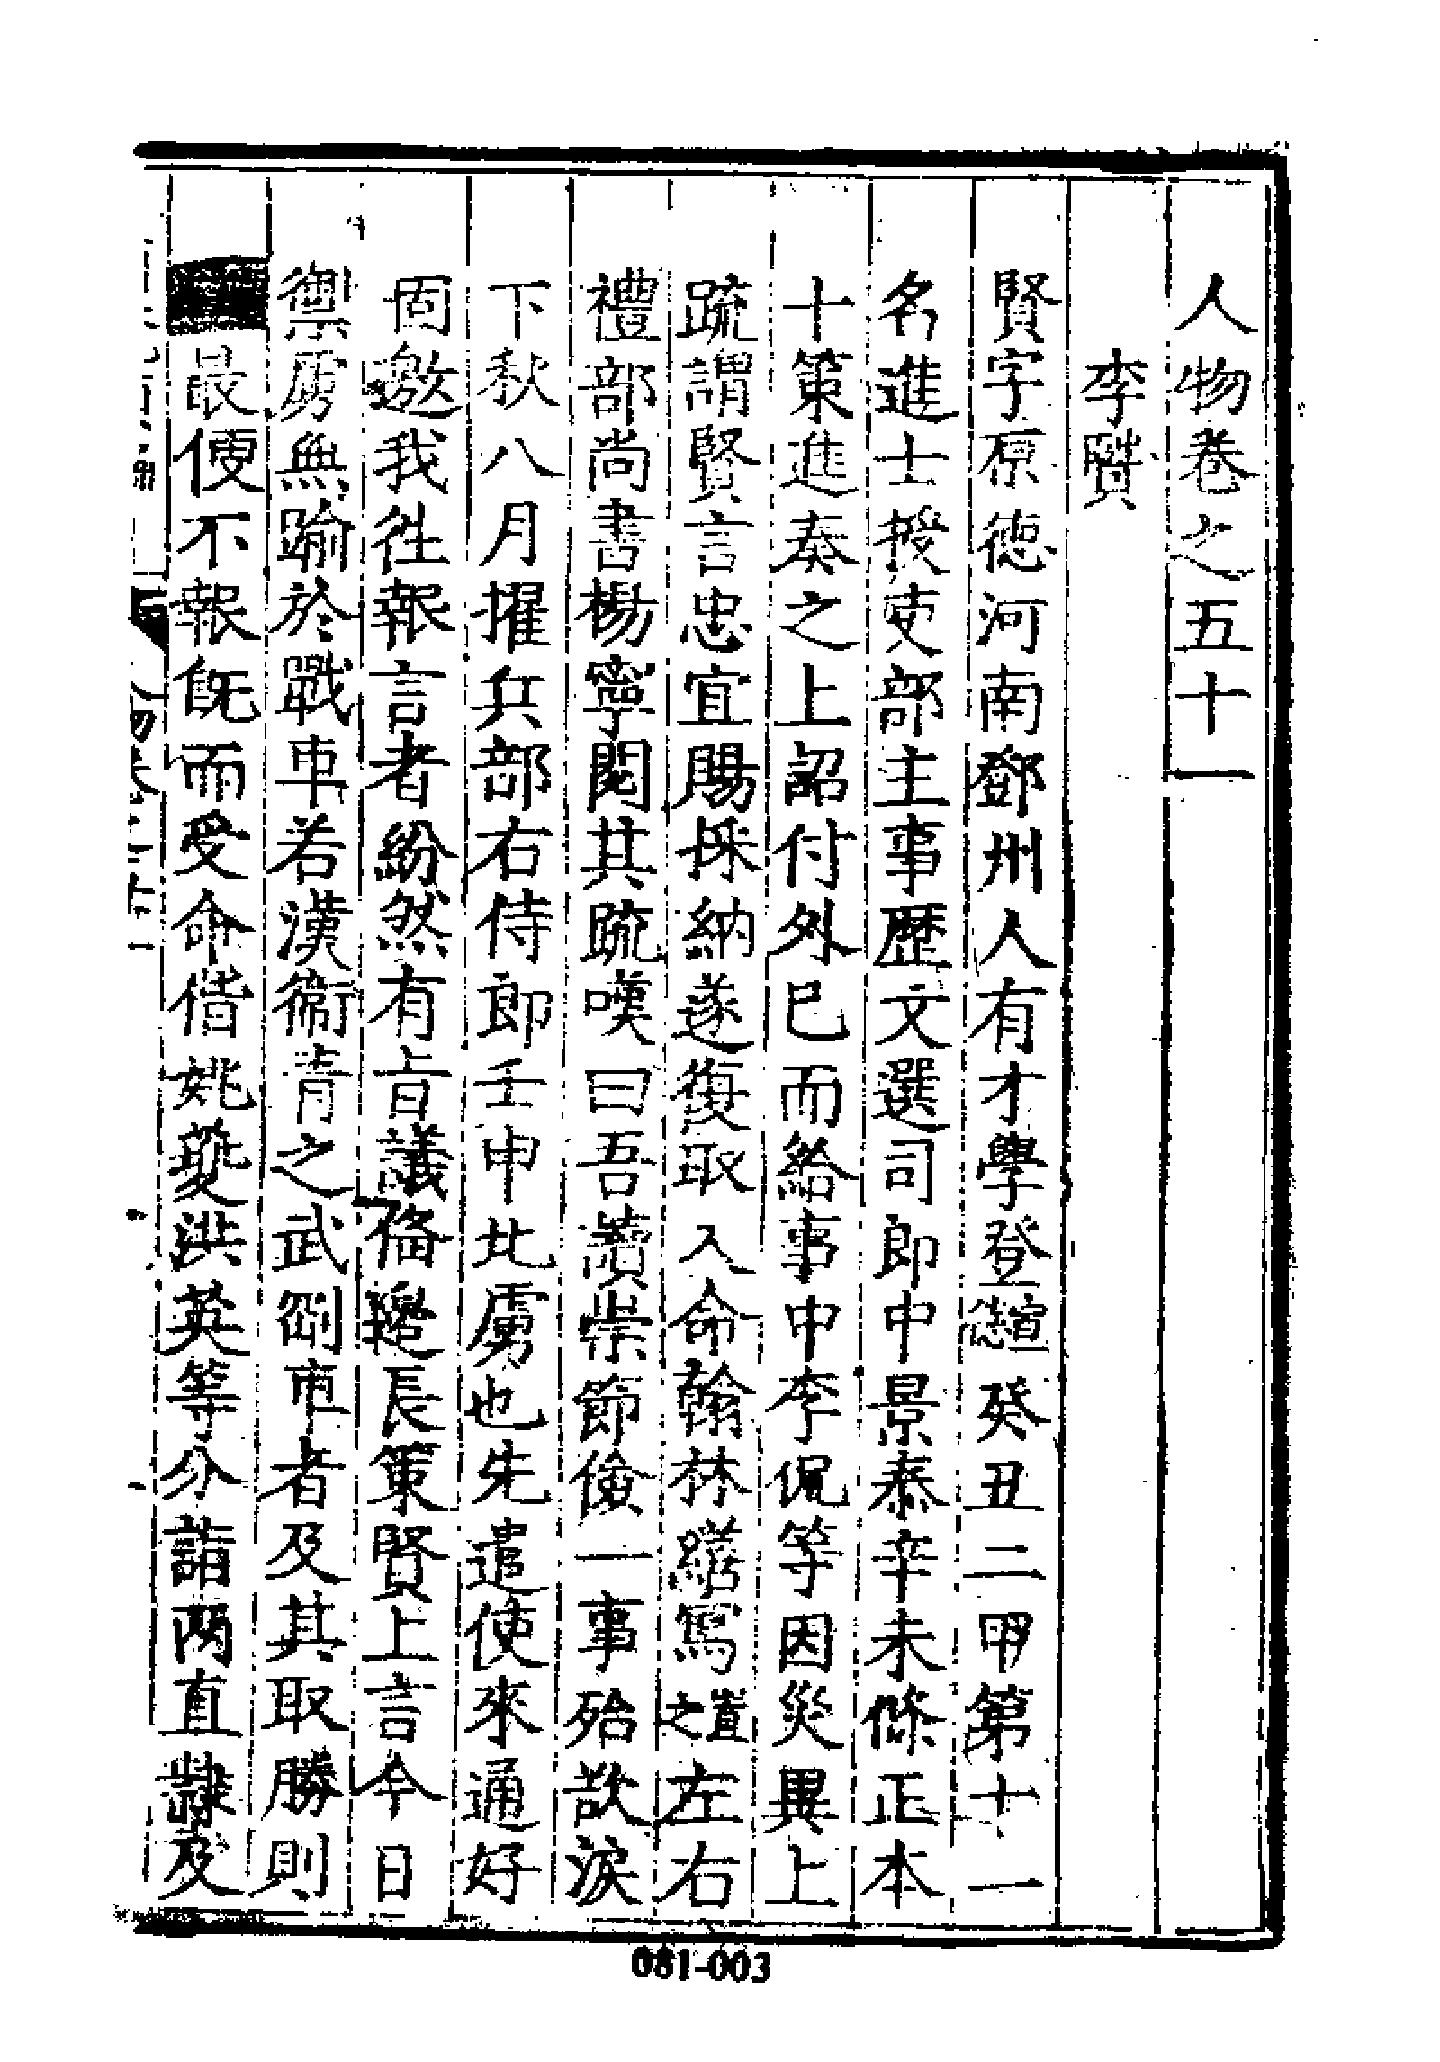 人物卷之五十一
李賢
賢字原德河南鄧州人有才學登宣德癸丑二甲第十一
名進士授吏部主事歷文選司郎中景泰辛未條正本
十策進奏之上詔付外已而給事中李侃等因災異上
疏謂賢言忠宜賜採納遂復取入命翰林繕寫置之左右
禮部尚書楊寧閱其疏嘆曰吾讀崇節儉一事殆欲淚
下秋八月擢兵部右侍郎壬申北虜也先遣使來通好
固邀我往報言者紛然有旨議俻邊長策賢上言今日
禦虜無踰於戰車若漢衛青之武剛車者及其取勝則
最便不報旣而受命偕姚夔洪英等分詣两直隸及
人物卷之五十一
081-003